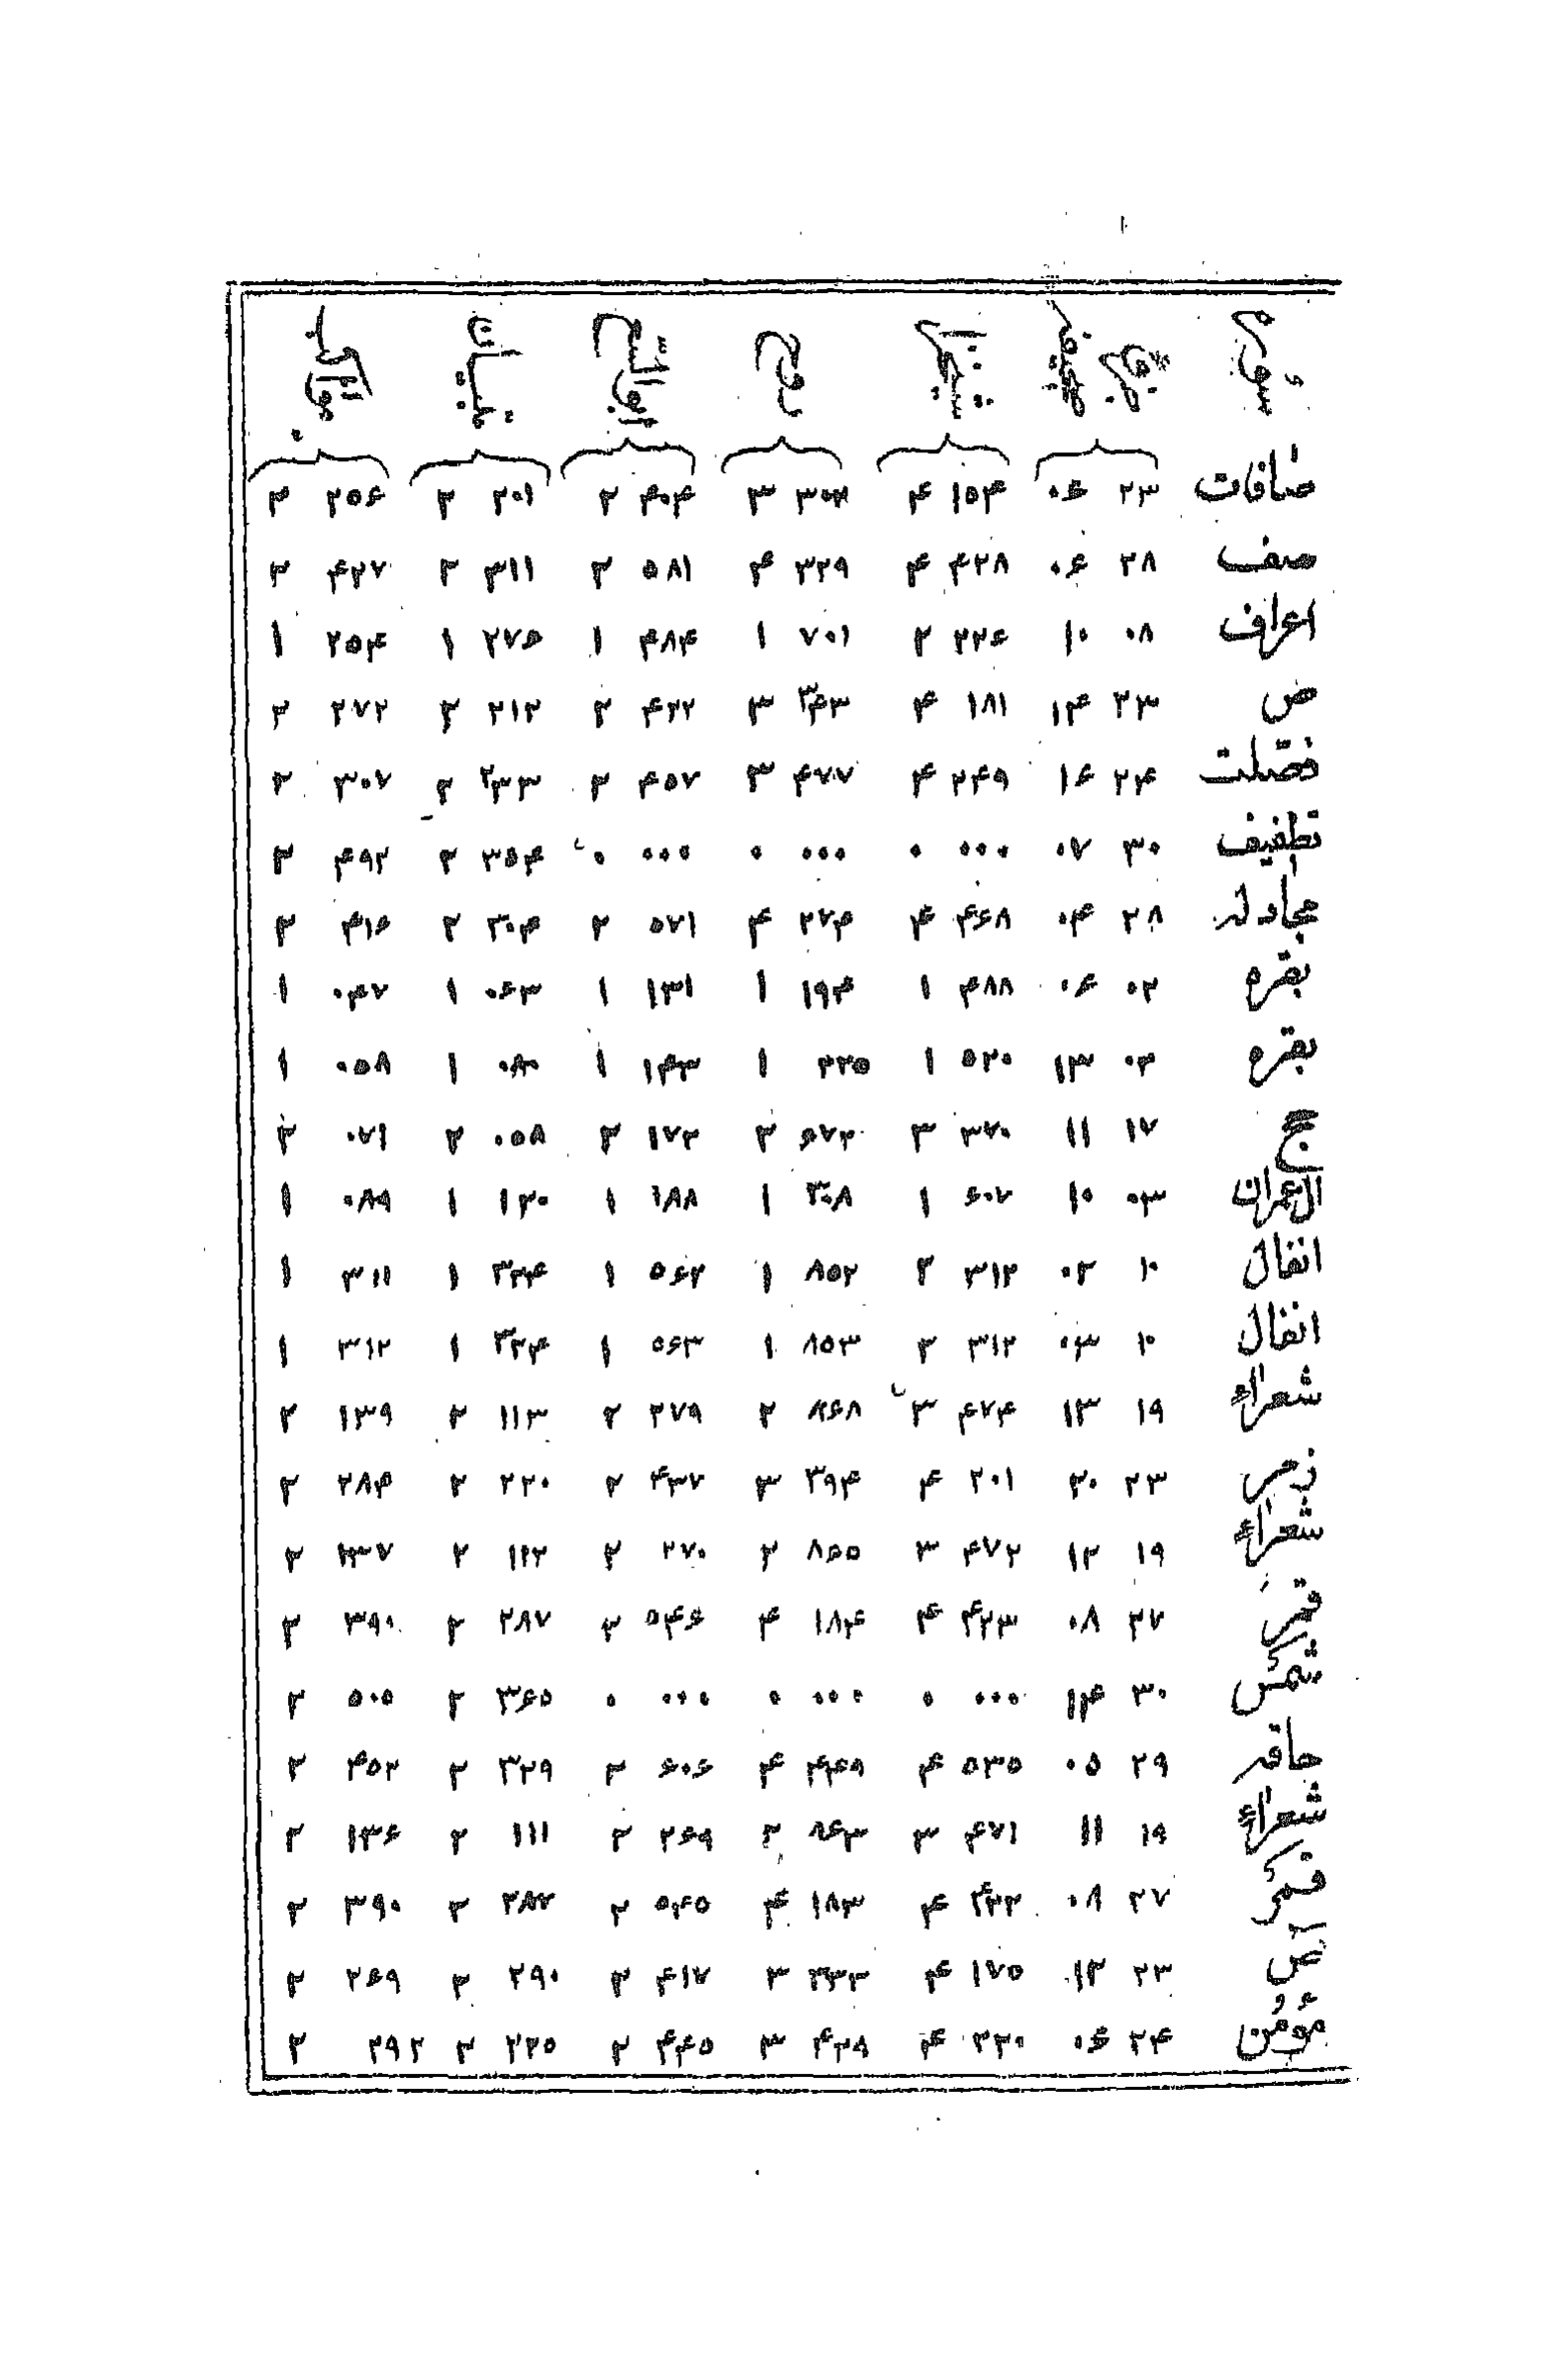 صافات ۲۳ ۰۶ ۱۵۴ ۴ ۳۰۲ ۳ ۴۰۴ ۲ ۲۰۱ ۲ ۲۵۶ ۲
صف ۲۸ ۰۶ ۴۲۸ ۴ ۳۲۹ ۴ ۵۸۱ ۲ ۳۱۱ ۲ ۴۲۷ ۲
اعراف ۰۸ ۱۰ ۲۲۶ ۲ ۷۰۱ ۱ ۴۸۴ ۱ ۲۷۶ ۱ ۲۵۴ ۱
ص ۲۳ ۱۴ ۱۸۱ ۴ ۳۴۳ ۳ ۴۲۲ ۲ ۲۱۲ ۲ ۲۷۲ ۲
فصّلت ۲۴ ۱۶ ۲۴۹ ۴ ۴۷۷ ۳ ۴۵۷ ۲ ۲۳۳ ۲ ۳۰۷ ۲
تطفیف ۳۰ ۰۷ ۰۰۰ ۰ ۰۰۰ ۰ ۰۰۰ ۰ ۳۵۴ ۲ ۴۹۲ ۲
مجادله ۲۸ ۰۴ ۴۶۸ ۴ ۲۷۴ ۴ ۵۷۱ ۲ ۳۰۴ ۲ ۴۱۶ ۲
بقره ۰۲ ۰۶ ۴۸۸ ۱ ۱۹۴ ۱ ۱۳۱ ۱ ۰۶۳ ۱ ۰۴۷ ۱
بقره ۰۲ ۱۳ ۵۲۰ ۱ ۲۲۵ ۱ ۱۴۳ ۱ ۰۸۰ ۱ ۰۵۸ ۱
حج ۱۷ ۱۱ ۳۷۰ ۳ ۶۷۲ ۲ ۱۷۲ ۲ ۰۵۸ ۲ ۰۷۱ ۲
ال عمران ۰۳ ۱۰ ۶۰۷ ۱ ۳۰۸ ۱ ۱۸۸ ۱ ۱۲۰ ۱ ۰۸۹ ۱
انفال ۱۰ ۰۲ ۳۱۲ ۲ ۸۵۲ ۱ ۵۶۲ ۱ ۳۲۴ ۱ ۳۱۱ ۱
انفال ۱۰ ۰۳ ۳۱۲ ۲ ۸۵۳ ۱ ۵۶۳ ۱ ۳۲۴ ۱ ۳۱۲ ۱
شعراء ۱۹ ۱۳ ۴۷۴ ۳ ۸۶۸ ۲ ۲۷۹ ۲ ۱۱۳ ۲ ۱۳۹ ۲
زمر ۲۳ ۲۰ ۲۰۱ ۴ ۳۹۴ ۳ ۴۳۷ ۲ ۲۲۰ ۲ ۲۸۴ ۲
شعراء ۱۹ ۱۲ ۴۷۲ ۳ ۸۶۵ ۲ ۲۷۰ ۲ ۱۱۲ ۲ ۱۳۷ ۲
قمر ۲۷ ۰۸ ۴۲۳ ۴ ۱۸۴ ۴ ۵۴۶ ۲ ۲۸۷ ۲ ۳۹۰ ۲
شمس ۳۰ ۱۴ ۰۰۰ ۰ ۰۰۰ ۰ ۰۰۰ ۰ ۳۶۵ ۲ ۵۰۵ ۲
حاقه ۲۹ ۰۵ ۵۳۵ ۴ ۴۴۹ ۴ ۶۰۶ ۲ ۳۲۹ ۲ ۴۵۲ ۲
شعراء ۱۹ ۱۱ ۴۷۱ ۳ ۸۶۳ ۲ ۲۶۹ ۲ ۱۱۱ ۲ ۱۳۶ ۲
قمر ۲۷ ۰۸ ۴۲۲ ۴ ۱۸۳ ۴ ۵۴۵ ۲ ۲۸۷ ۲ ۳۹۰ ۲
ص ۲۳ ۱۲ ۱۷۵ ۴ ۳۳۲ ۳ ۴۱۷ ۲ ۲۹۰ ۲ ۲۶۹ ۲
مؤمن ۲۴ ۰۶ ۲۲۰ ۴ ۴۲۹ ۳ ۴۴۵ ۲ ۲۲۵ ۲ ۲۹۲ ۲